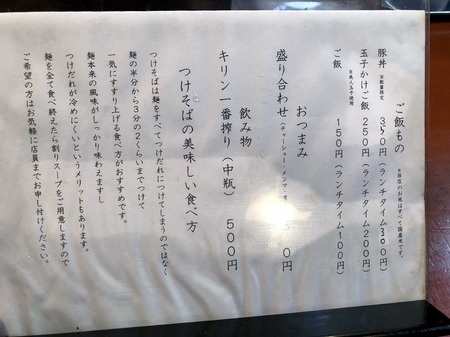 ご飯もの ※当店のお米はすべて国産米です。
豚丼 ※数量限定 350円(ランチタイム300円)
玉子かけご飯 250円(ランチタイム200円)
ご飯 150円(ランチタイム100円)
おつまみ
盛り合わせ(チャーシュー・メンマ・ 0円
飲み物
キリン一番搾り(中瓶) 500円
つけそばの美味しい食べ方
つけそばは麺をすべてつけだれにつけてしまうのではなく
麺の半分から3分の2くらいまでつけて
一気にすすり上げる食べ方がおすすめです。
麺本来の風味がしっかり味わえますし
つけだれが冷めにくいというメリットもあります。
麺を全て食べ終えたら割りスープをご用意しますので
ご希望の方はお気軽に店員までお申し付けください。